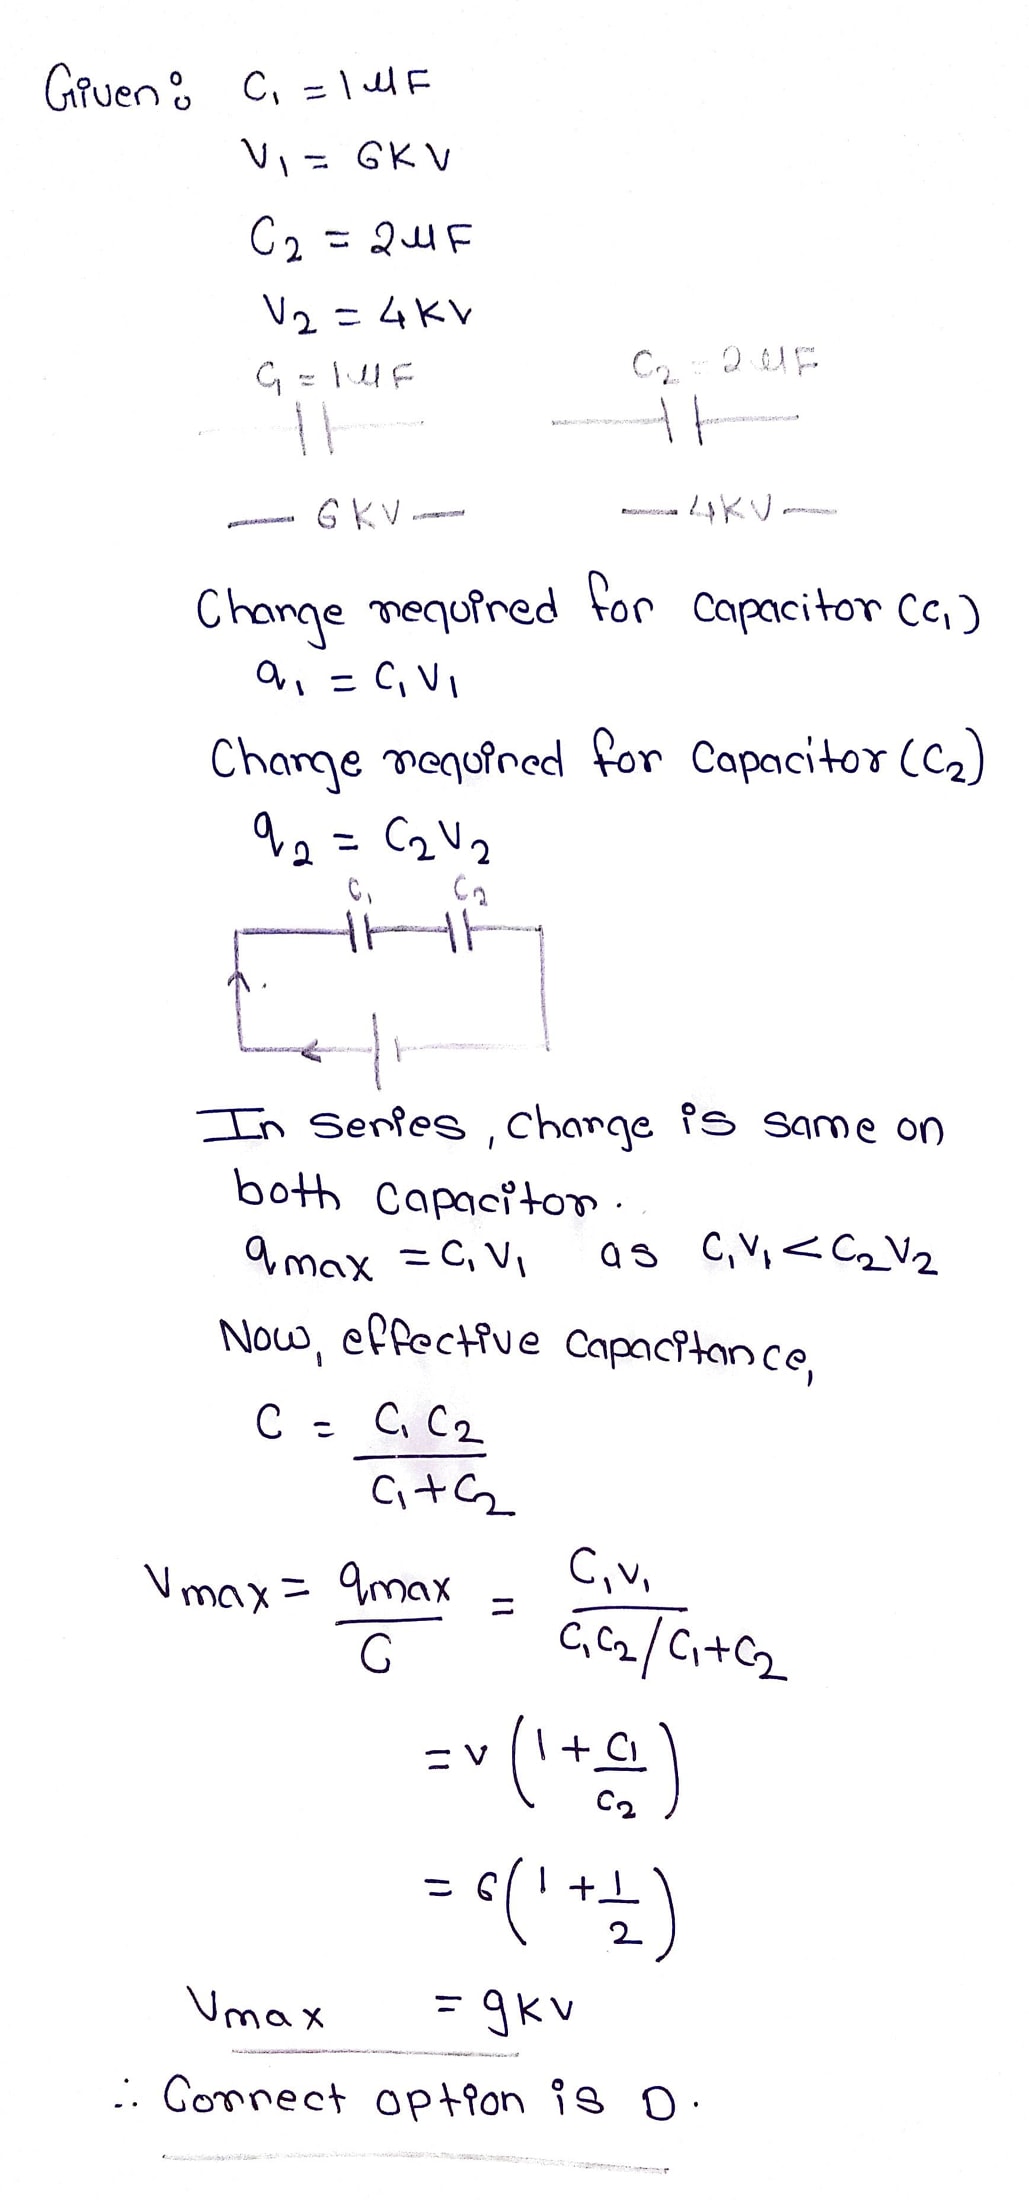 Given: C₁ = 1 μF
V₁ = 6KV
C₂ = 2μF
V₂ = 4KV
C₁ = 1μF C₂ = 2μF
— 6KV — — 4KV —
Charge required for capacitor (C₁)
q₁ = C₁V₁
Charge required for Capacitor (C₂)
q₂ = C₂V₂
C₁ C₂
In series, charge is same on
both capacitor.
qmax = C₁V₁ as C₁V₁ < C₂V₂
Now, effective capacitance,
C = C₁C₂ / C₁+C₂
Vmax = qmax / C = C₁V₁ / C₁C₂/C₁+C₂
= V (1 + C₁/C₂)
= 6 (1 + 1/2)
Vmax = 9KV
∴ Correct option is D.